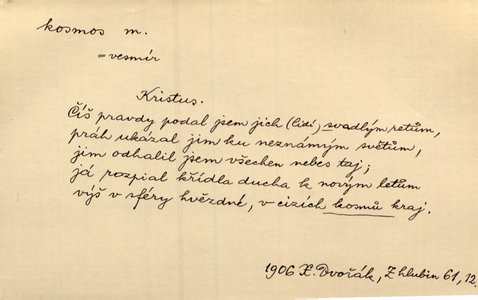 kosmos m.
= vesmír
Kristus.
Číš pravdy podal jsem jich (lidí) svadlým retům,
práh ukázal jim ku neznámým světům,
jim odhalil jsem všechen nebes taj;
já rozpial křídla ducha k novým letům
výš v sféry hvězdné, v cizích kosmů kraj.
1906 X. Dvořák, Z hlubin 61, 12.